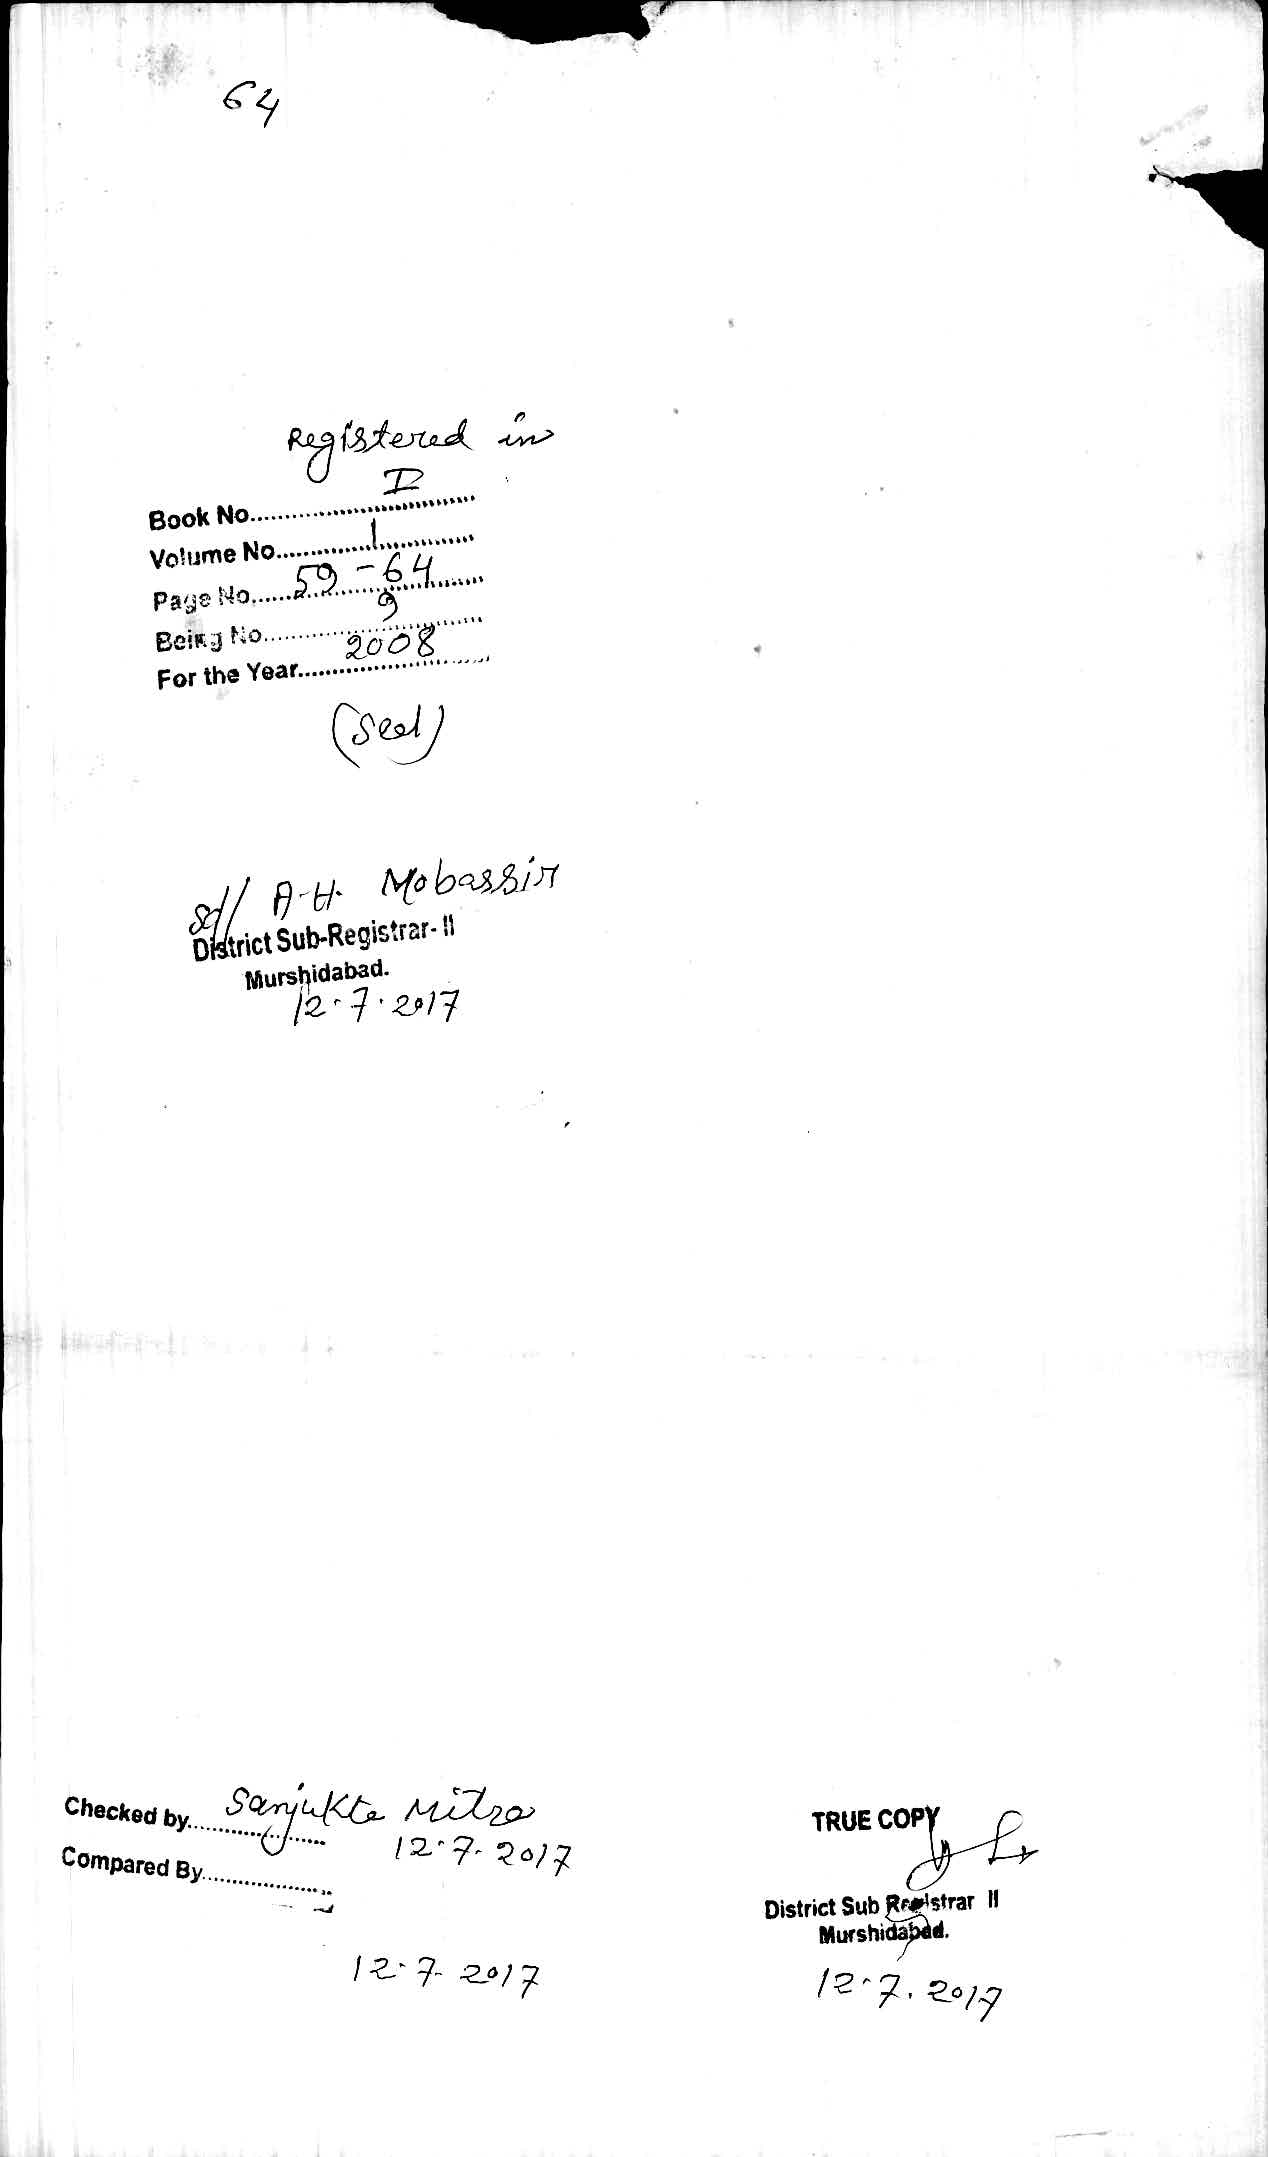 64
Registered in
Book No. I
Volume No. 1
Page No. 59-64
Being No. 9
For the Year 2008
(Seal)
Sd/ A.H. Mobassir
District Sub-Registrar- II
Murshidabad.
12.7.2017
Checked by Sanjukta Mitra
12.7.2017
Compared By
12.7.2017
TRUE COPY
District Sub Registrar II
Murshidabad.
12.7.2017